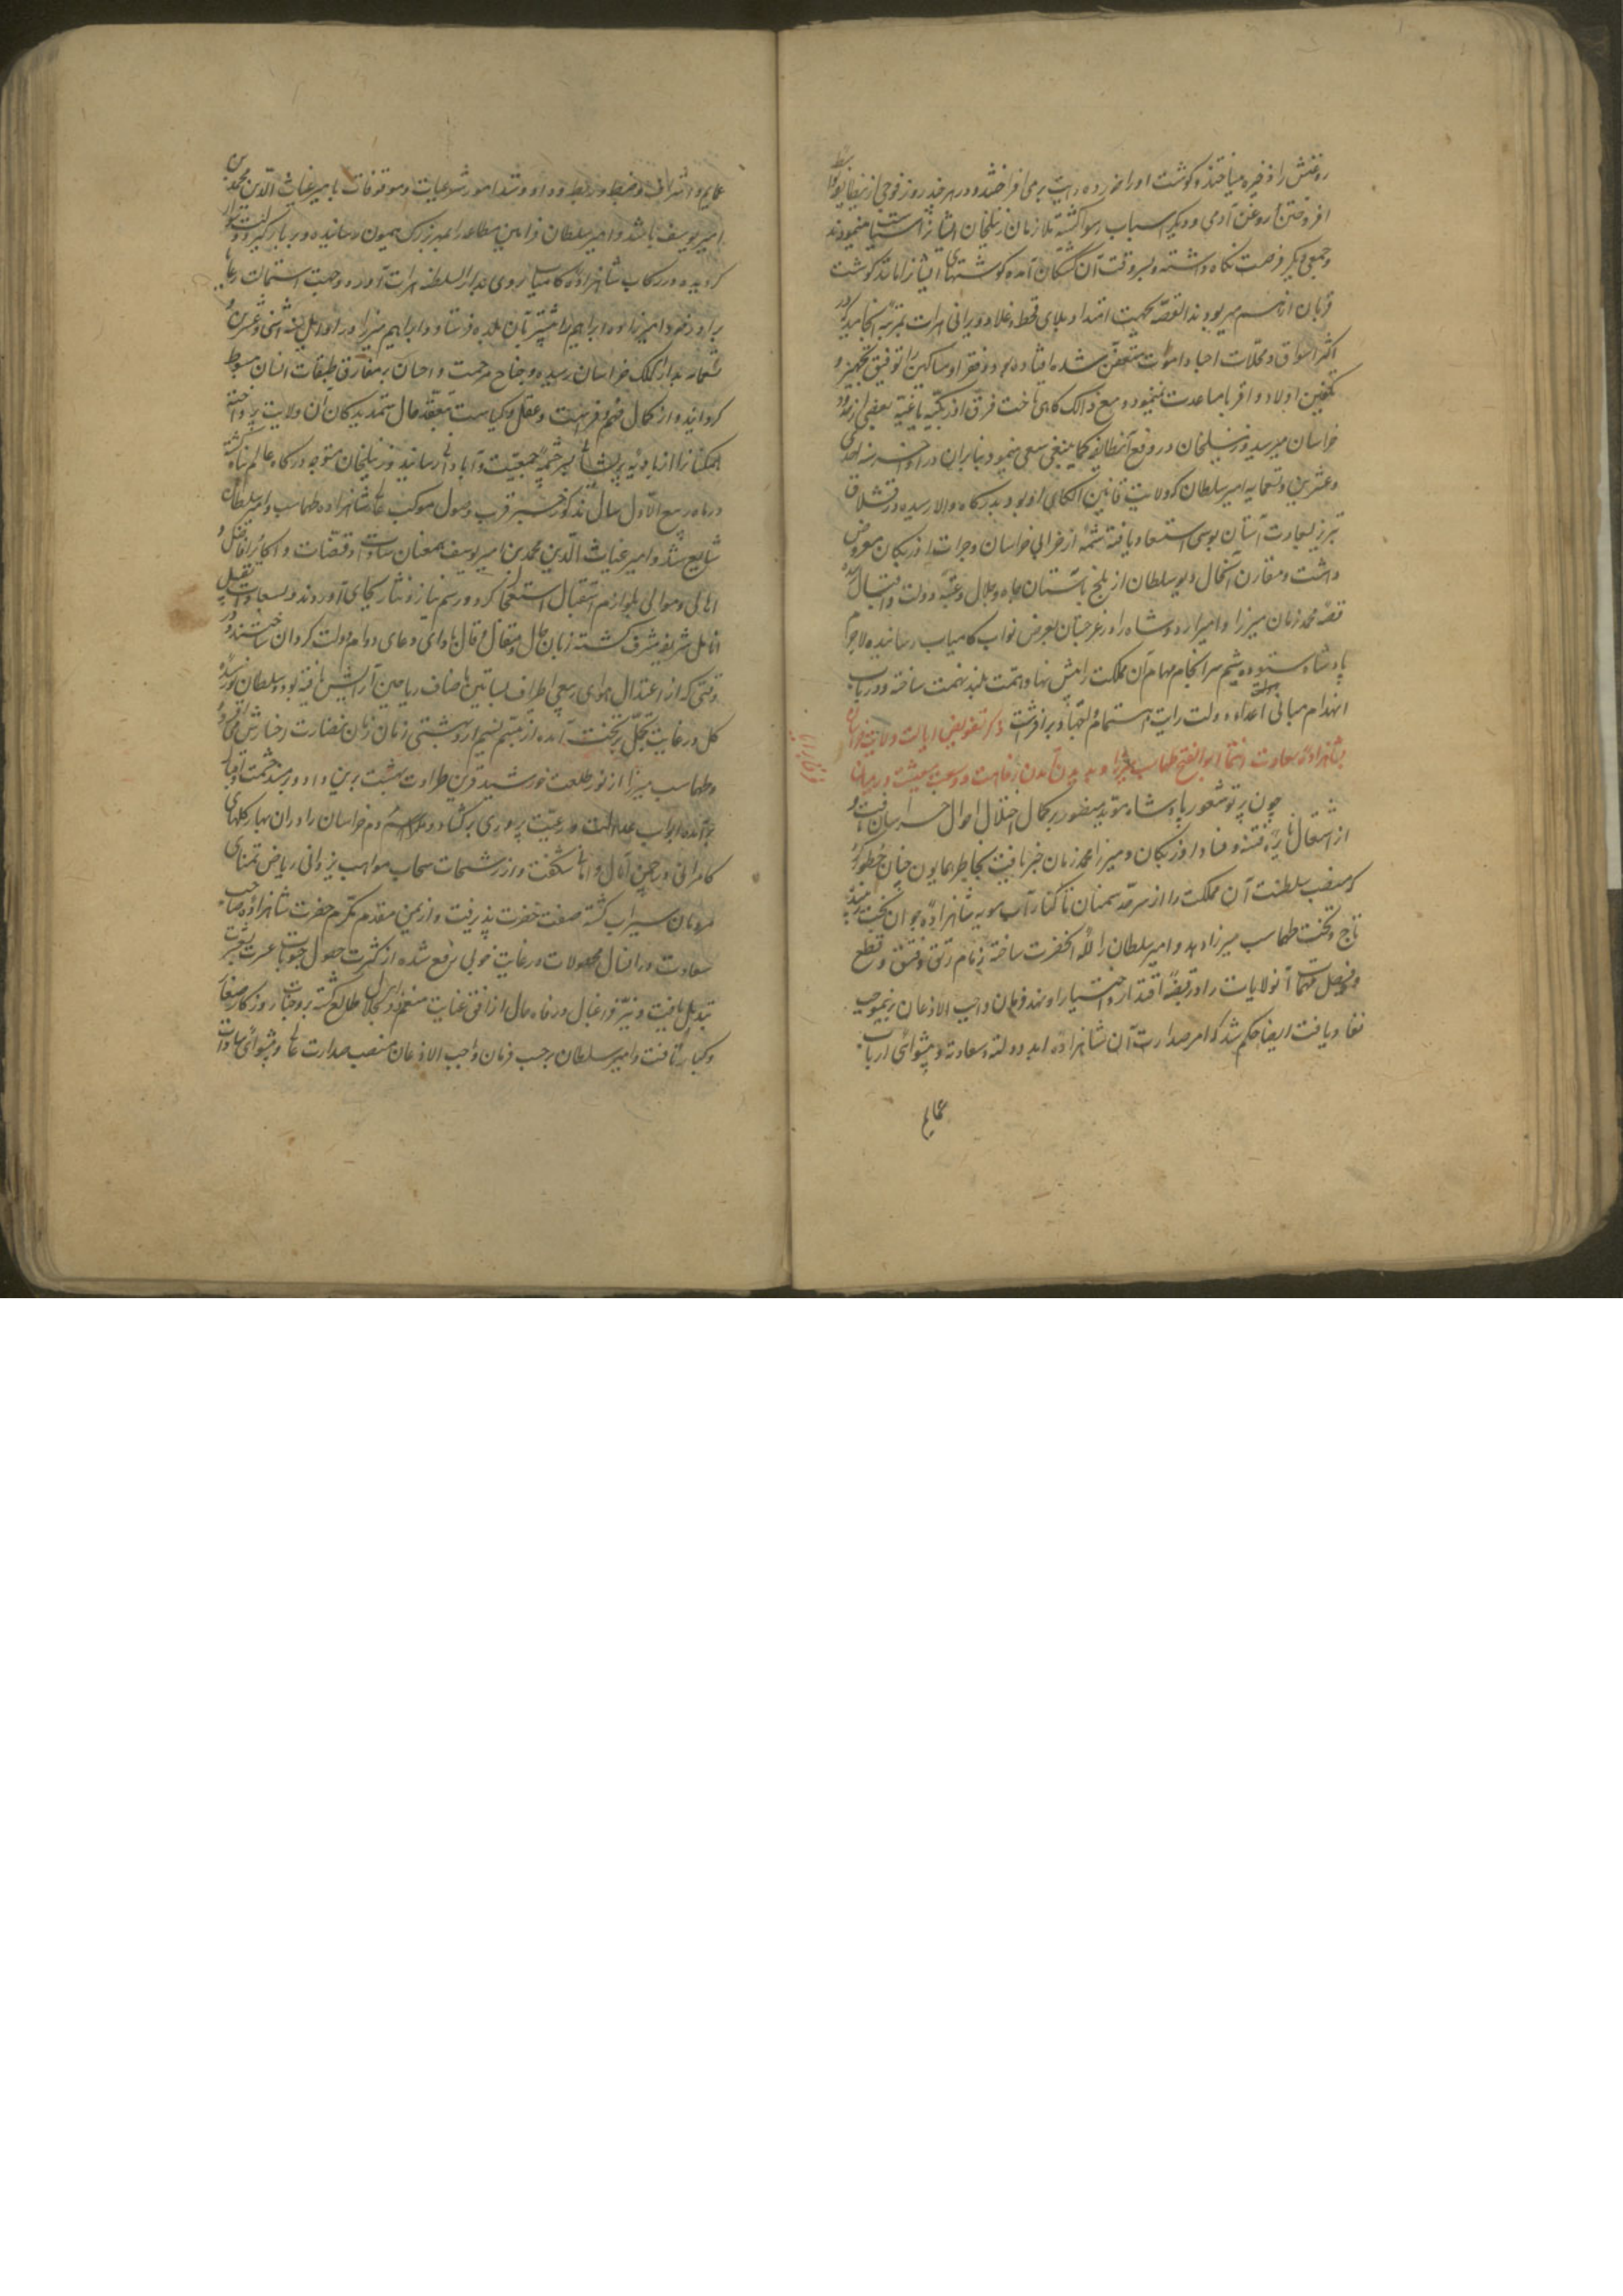 روغنش را ذخیره میساختند و گوشت او را خورده رایت بر می افراختند و در هر چند روز فوجی از
افروختن روغن آدمی و دیگر اسباب رسوا گشته ملازمان زینلخان ایشانرا سیاست مینمودند
و جمعی دیگر فرصت نگاه داشته بسر وقت آن کشتگان آمده گوشتهای ایشانرا مانند گوشت
قربان از هم میربودند القصه بجهت امتداد بلای قحط و غلا ویرانی هرات بمرتبه انجامید که در
اکثر اسواق و محلات احیا و اموات متعفن شده افتاده بود و فقرا و مساکین را توفیق تجهیز و
تکفین اولاد و اقربا مساعدت نمینمود و مع ذالک گاهی تاخت فرق اوزبکیه باغیه ببعضی از حدود
خراسان میرسید و زینلخان در دفع آنطایفه کما ینبغی سعی مینمود بنابران در اواخر سنه احدی
و عشرین و تسعمایه امیر سلطان که ولایت قاین الکای او بود بدرگاه والا رسیده در قشلاق
تبریز بسعادت آستان بوسی استسعاد یافته شمه از خرابی خراسان و جرات اوزبکان معروض
داشت و مقارن آنحال دیو سلطان از بلخ باستان جاه و جلال و عتبه دولت و اقبال آمده
قصه محمد زمان میرزا و امیر اردو شاه را در غرجستان بعرض نواب کامیاب رسانیده لاجرم
پادشاه ستوده شیم سرانجام مهام آن مملکت را پیش نهاد همت بلند نهمت ساخته و در باب
انهدام مبانی اعداء دولت رایت اهتمام و التهاب بر افراشت ذکر تفویض ایالت ولایت خراسان
بشاهزاده سعادت انتما ابو الفتح طهماسب میرزا و پدید آمدن رفاهیت و وسعت معیشت در میان
چون پرتو شعور پادشاه مؤید منصور بر کمال اختلال احوال خراسان تافت و
از اشتعال نایره فتنه و فساد اوزبکان و میرزا محمد زمان خبر یافت بخاطر همایون چنان خطور کرد
که منصب سلطنت آن مملکت را از سرحد سمنان تا کنار آب مویه بشاهزاده جوان بخت
تاج و تخت طهماسب میرزا دهد و امیر سلطان را لله آنحضرت ساخته زمام رتق و فتق و قطع
و فصل مهمات آنولایات را در قبضه اقتدار و اختیار او نهد و فرمان واجب الاذعان برینموجب
نفاذ یافت ایضا حکم شد که امر صدارت آن شاهزاده ابد دولته و سعادته و پیشوائی ارباب
عمایم
عمایم و اشراف و ضبط و ربط و داد و ستد امور شرعیات و موقوفات بامیر غیاث الدین محمد بن
امیر یوسف باشد و امیر سلطان فرامین مطاعه را بمهر بزرک همیون رسانیده
گردیده در رکاب شاهزاده کامیاب روی بدار السلطنه هرات آورد و جهت استمالت رعایا
برادر خود امیرزاده ابراهیم را پیشتر بآن بلده فرستاد و ابراهیم میرزا در اوایل سنه اثنی و عشرین و
تسعمایه بدار الملک خراسان رسیده و جناح مرحمت و احسان بر مفارق طبقات انسان مبسوط
گردانیده و از کمال فهم و فراست و عقل و کیاست بتفقد حال ستمدیدگان آن ولایت پرداخته
همکنانرا از بادیه پریشانی بسر چشمه جمعیت و آبادانی رسانید و زینلخان متوجه درگاه عالم پناه گشته
در ماه ربیع الاول سال مذکور خبر قرب وصول موکب عالی شاهزاده طهماسب و امیر سلطان
شایع شد و امیر غیاث الدین محمد بن امیر یوسف بمعنان سادات و قضات و اکابر و افاضل و
اهالی و موالی بلوازم استقبال استعجال کرد و رسم نیاز و نثار بجای آوردند و بسعادت تقبیل
انامل شریف مشرف گشته زبان حال و مقال و قال بادای دعای دوام دولت گردان ساختند و در
وقتی که از اعتدال هوای ربیعی اطراف بساتین باصناف ریاحین آرایش یافته بود و سلطان
گل در غایت تجمل بر تخت آمده از تبسم نسیم اردیبهشتی زمان زمان بنضارت رخسارش می افزود
و طهماسب میرزا از نور طلعت خورشید قرین طراوت بهشت برین داد و در مسند حشمت و اقبال
برآمده ابواب عدالت و رعیت پروری بر گشاد و مردم خراسان را در ان بهار گلهای
کامرانی در چمن آمال و امانی شکفت و از رشحات سحاب مواهب یزدانی ریاض تمنای
مردمان سیراب گشته صفت خضرت پذیرفت و از یمن مقدم مکرم حضرت شاهزاده صاحب
سعادت در انسال محصولات در غایت خوبی مرتفع شده از کثرت حصول حبوبات عسرت بعشرت
تبدیل یافت و نیر فراغبال و رفاه حال از افق عنایت منعم ذو الجلال طالع گشته بر وجنات روزگار صغار
و کبار تافت و امیر سلطان برحسب فرمان واجب الاذعان منصب صدارت عالی و پیشوائی سادات